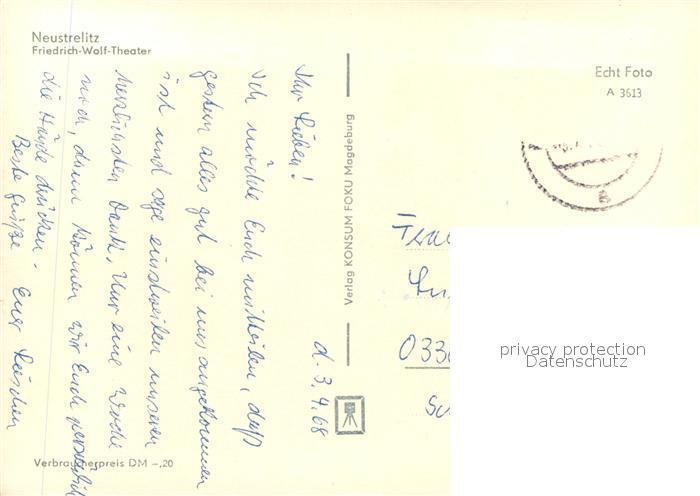 Neustrelitz
Friedrich-Wolf-Theater
d. 3.4.68
Ihr Lieben!
Ich möchte Euch mitteilen, daß
gestern alles gut bei uns angekommen
ist und sage einstweilen unseren
herzlichsten Dank. Nur eine Woche
noch, dann können wir Euch persönlich
die Hände drücken.
Beste Grüße Eure
Verbraucherpreis DM -,20
Verlag KONSUM FOKU Magdeburg
Echt Foto
A 3613
033
privacy protection
Datenschutz